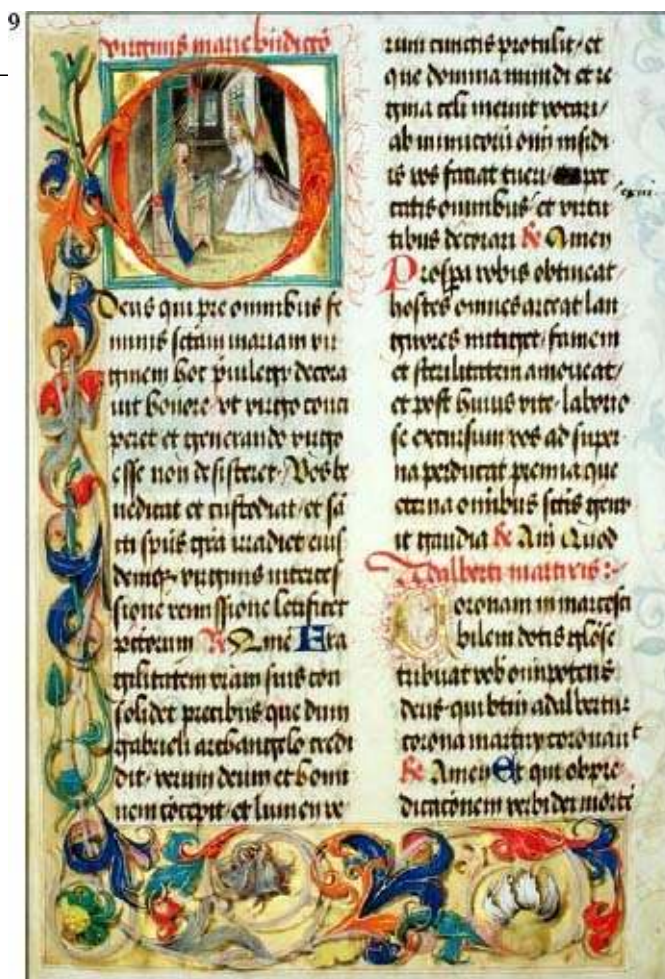 9
virginis marie bndicto
O
Deus qui pre omnibus fe
minis sctam mariam vir
ginem hoc pruilegy decora
uit honore vt virgo conci
peret et generando virgo
esse non desisteret Vos be
nedicat et custodiat et sā
cti spūs grā irradiet eius
demq virginis interces
sione remissione letificet
pctorum R Amē Fra
gilitatem vrām suis con
solidet precibus que dum
gabrieli archangelo credi
dit verum deum et homi
nem cōcepit et lumen ve
rum cunctis protulit et
que domina mundi et re
gina celi meruit vocari
ab inimicorū om̄i insidi
is vos faciat tueri pec
catis omnibus et virtu
tibus decorari R Amen
Prospa vobis obtineat
hostes omnes arceat lan
guores mitiget famem
et sterilitatem amoueat
et post huius vite laborio
se excursum vos ad super
na perducat premia que
eterna omībus sctis genu
it gaudia R Am Quod
Adalberti martiris
Coronam inmarcesci
bilem dotis glōse
tribuat vob omīpotens
deus qui btm adalbertum
corona martiry coronauit
R Amen Et qui ob pre
dicatōnem verbi dei mortē